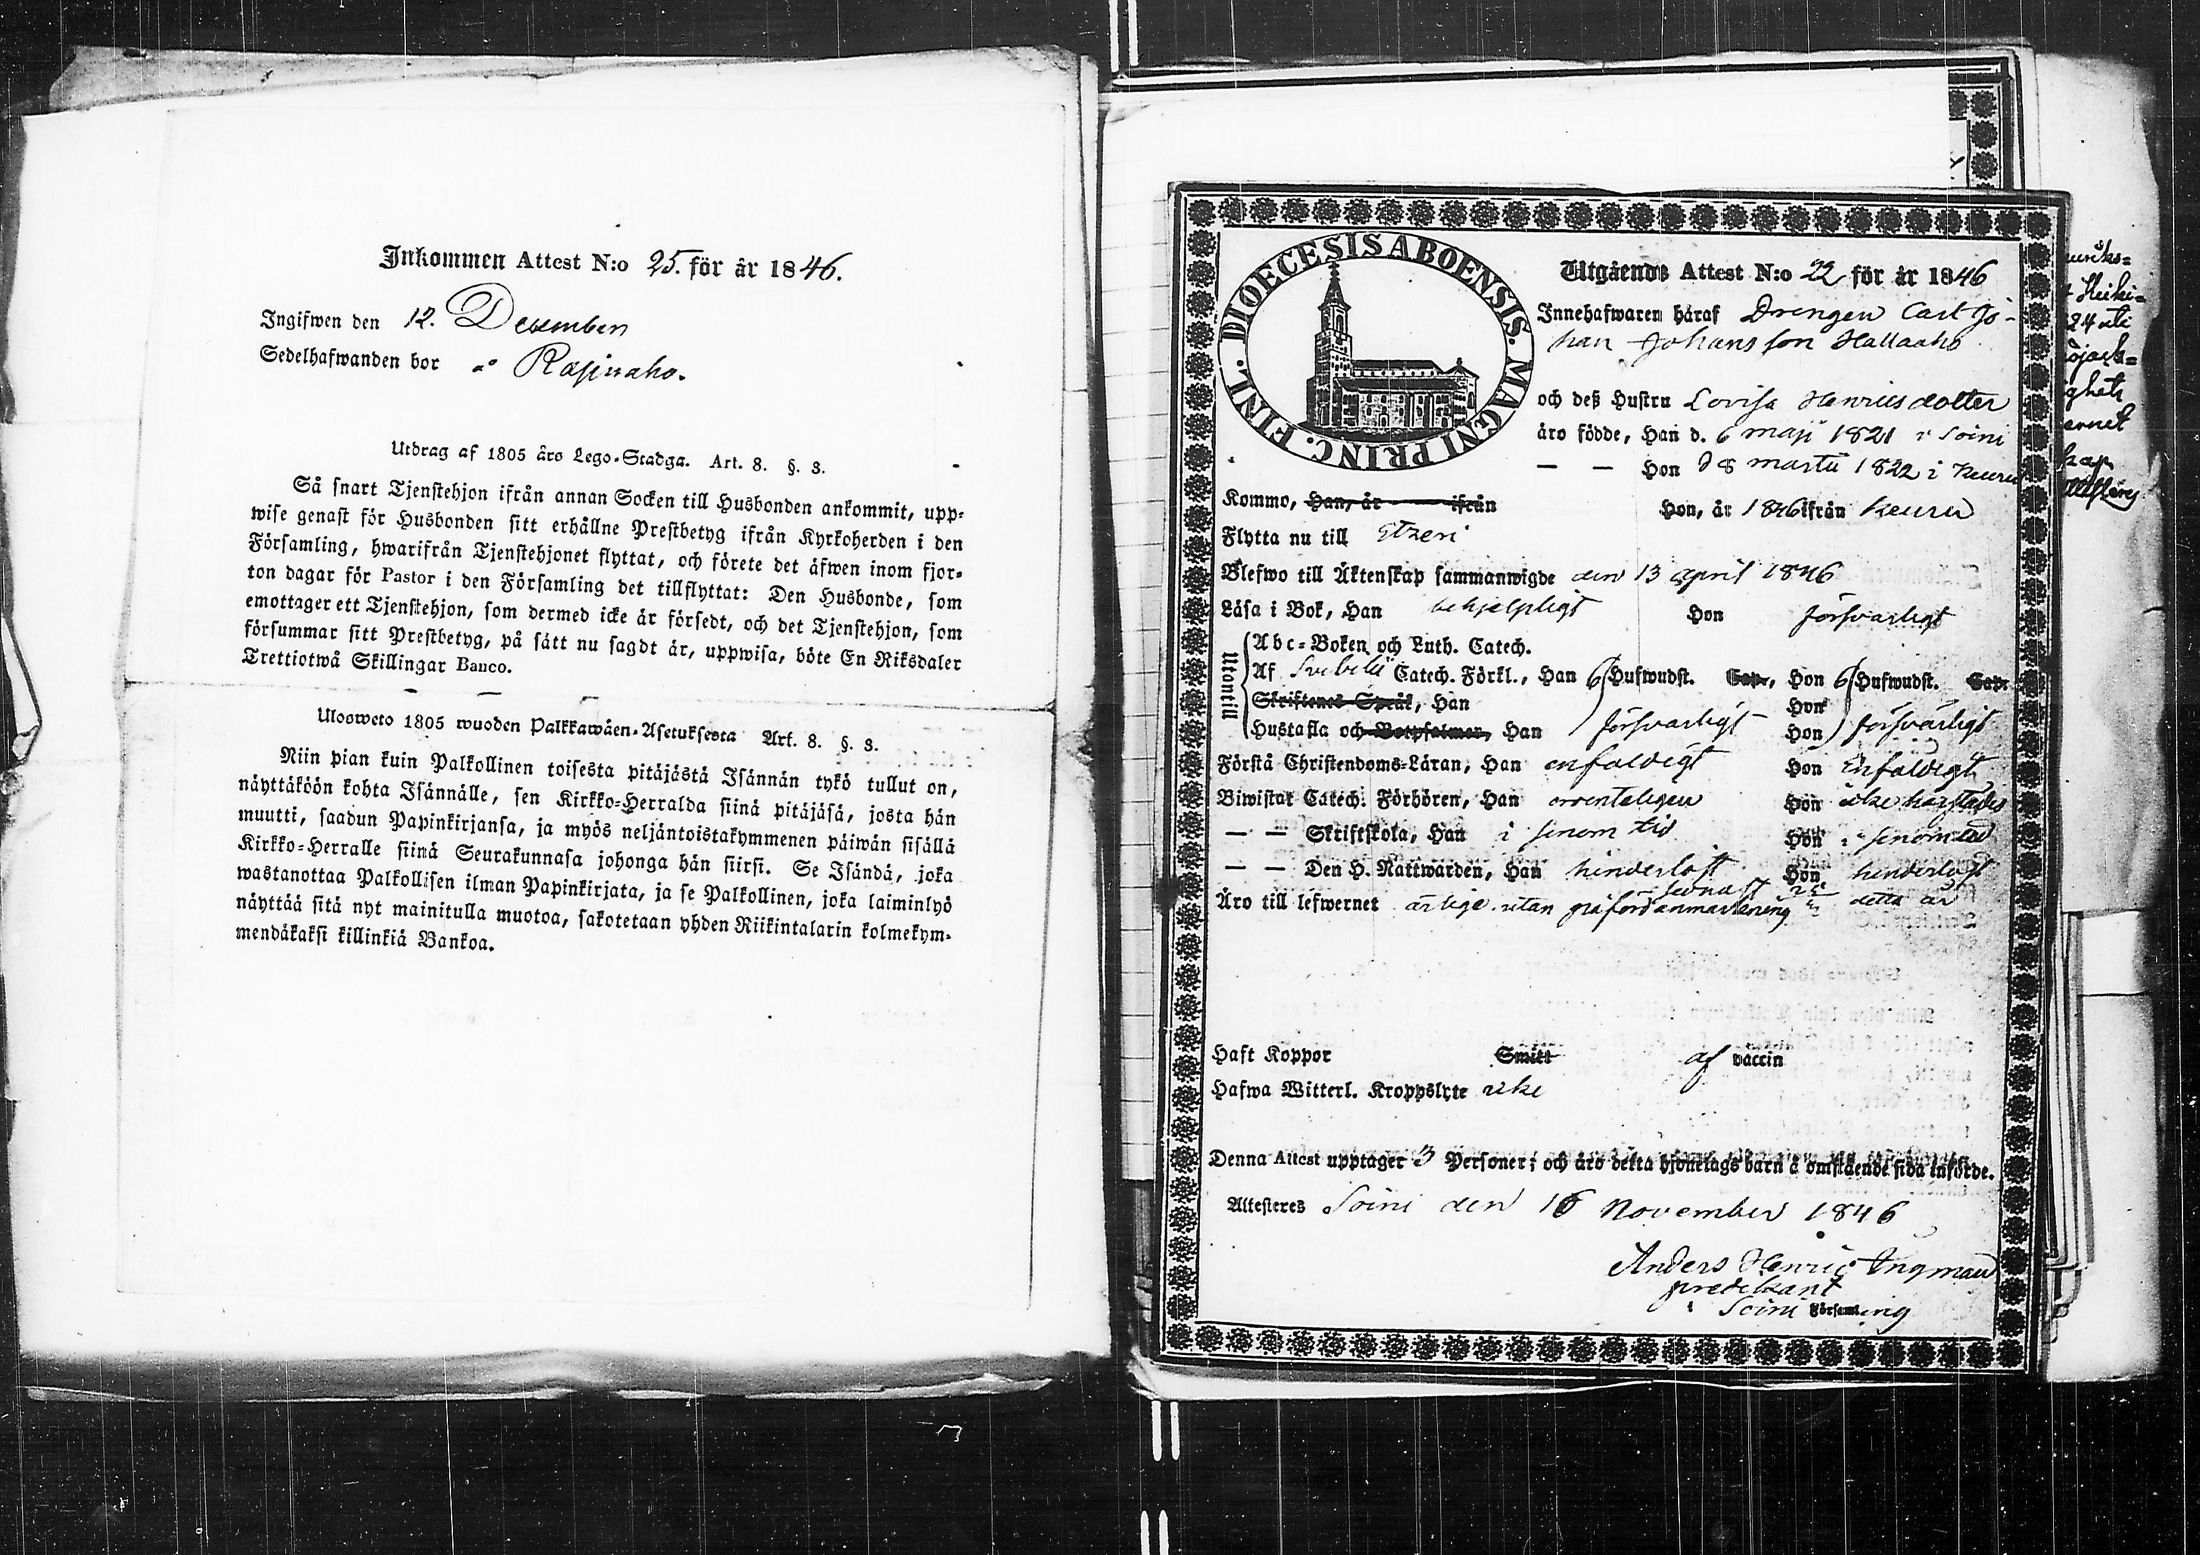 Inkommen Attest N:o 25. för år 1846.
Ingifwen den 12. Desember
Sedelhafwanden bor å Rajuaho.
Utdrag af 1805 års Lego-Stadga. Art. 8. §. 3.
Så snart Tjenstehjon ifrån annan Socken till Husbonden ankommit, upp-
wise genast för Husbonden sitt erhållne Prestbetyg ifrån Kyrkoherden i den
Församling, hwarifrån Tjenstehjonet flyttat, och förete det äfwen inom fjor-
ton dagar för Pastor i den Församling det tillflyttat: Den Husbonde, som
emottager ett Tjenstehjon, som dermed icke är försedt, och det Tjenstehjon, som
försummar sitt Prestbetyg, på sätt nu sagdt är, uppwisa, böte En Riksdaler
Trettiotwå Skillingar Banco.
Ulosweto 1805 wuoden Palkkawäen-Asetuksesta Art. 8. §. 3.
Niin pian kuin Palkollinen toisesta pitäjästä Isännän tykö tullut on,
näyttäköön kohta Isännälle, sen Kirkko-Herralda siinä pitäjäsä, josta hän
muutti, saadun Papinkirjansa, ja myös neljäntoistakymmenen päiwän sisällä
Kirkko-Herralle siinä Seurakunnasa johonga hän siirsi. Se Isändä, joka
wastanottaa Palkollisen ilman Papinkirjata, ja se Palkollinen, joka laiminlyö
näyttää sitä nyt mainitulla muotoa, sakotetaan yhden Riikintalarin kolmekym-
mendäkaksi killinkiä Bankoa.
DIOECESIS ABOENSIS. MAGNI PRINC. FINL.
Utgående Attest N:o 22 för år 1846
Innehafwaren häraf Drengen Carl Jo-
han Johansson Hallaaho
och deß Hustru Lovisa Henricsdotter
äro födde, Han d. 6 maji 1821 i Soini
— — Hon d 8 martii 1822 i Keuru
Kommo, Han, år ifrån Hon, år 1846 ifrån Keuru
Flytta nu till Etzeri
Blefwo till Äktenskap sammanwigde den 13 april 1846
Läsa i Bok, Han behjelpligt Hon försvarligt
Utontill
Abc-Boken och Luth. Catech.
Af Svebelii Catech. Förkl., Han 6 Hufwudst. Cap., Hon 6 Hufwudst. Cap.
Skriftenes Språk, Han Hon
Hustafla och Botpsalmer, Han försvarligt Hon försvarligt
Förstå Christendoms-Läran, Han enfaldigt Hon Enfaldigt
Biwistat Catech. Förhören, Han orrenteligen Hon icke härstädes
— — Skriftskola, Han i sinom tid Hon i sinom tid
— — Den H. Nattwarden, Han hinderlöst Hon hinderlöst
sednast detta år
Äro till lefwernet ärlige utan påförd anmärkning
Haft Koppor Smitt af vaccin
Hafwa Witterl. Kroppslyte icke
Denna Attest upptager 3 Personer; och äro detta hjonelags barn å omstående sida införde.
Attesteres Soini den 16 November 1846
Anders Henric Ingman
predikant
i Soini Församling